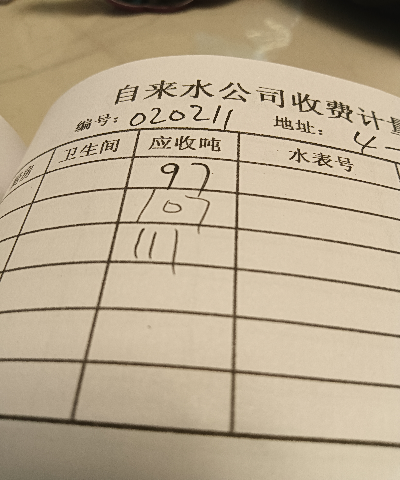 自来水公司收费计量
编号: 020211 地址: 4-
卫生间 应收吨 水表号
97
107
111